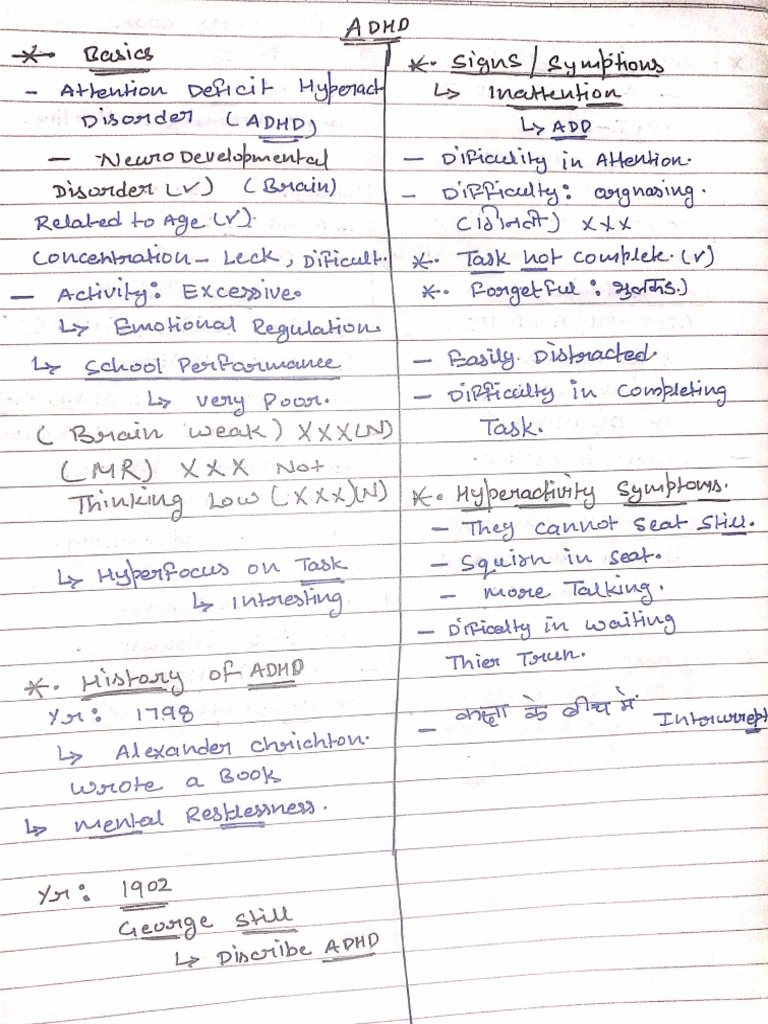 ADHD
* Basics
- Attention Deficit Hyperact
Disorder (ADHD)
- NeuroDevelopmental
Disorder (✓) (Brain)
Related to Age (✓).
Concentration - Leck, Dificult.
- Activity: Excessive.
↳ Emotional Regulation.
↳ School Performance
↳ very Poor.
(Brain weak) XXX (N)
(MR) XXX Not
Thinking Low (XXX)(N)
↳ Hyperfocus on Task
↳ Intresting
*. History of ADHD
Yr: 1798
↳ Alexander Chrichton.
Wrote a Book
↳ mental Restlessness.
Yr: 1902
George Still
↳ Discribe ADHD
*. Signs / Symptions
↳ Inattention
↳ ADD
- Dificulity in Attention.
- Difficulty: argnasing.
XXX
*. Task not complete. (✓)
*. Forgetful: भुलक्कड.)
- Easily Distracted.
- Difficulty in Completing
Task.
*. Hyperactivity Symptoms.
- They cannot Seat Still.
- Squirn in seat.
- more Talking.
- Dificalty in waiting
Thier Trun.
- कक्षा के बीच में Interurrept